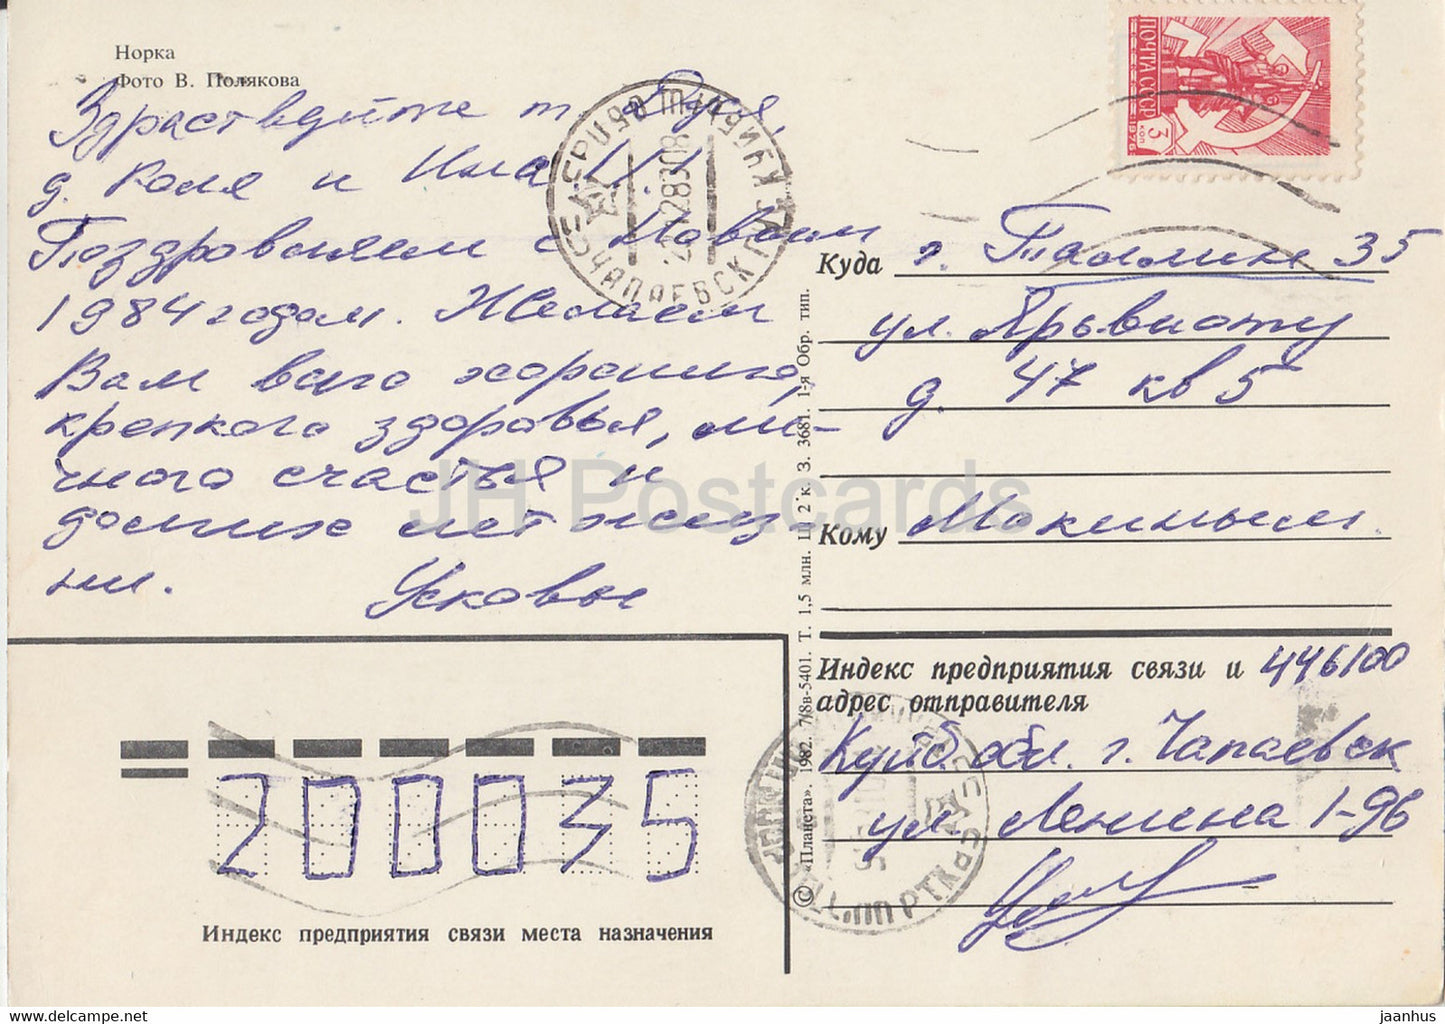 Норка
Фото В. Полякова
Здраствуйте т.
д. Коля и
Поздравляем с Новым
1984 годом. Желаем
Вам всего хорошего,
крепкого здоровья, ли-
чного счастья и
долгих лет жиз
ни. Усковы
ПОЧТА СССР
1976
3
коп
Куда г. Таллин 35
ул.
д. 47 кв 5
Кому
Индекс предприятия связи и 446100
адрес отправителя
Куйб. обл. г. Чапаевск
ул. Ленина 1-96
200035
Индекс предприятия связи места назначения
© «Планета». 1982. 7/8в-5401. Т. 1,5 млн. Ц 2 к. З. 3681. 1-я Обр. тип.
ЧАПАЕВСК
JH Postcards
jaanhus
www.delcampe.net